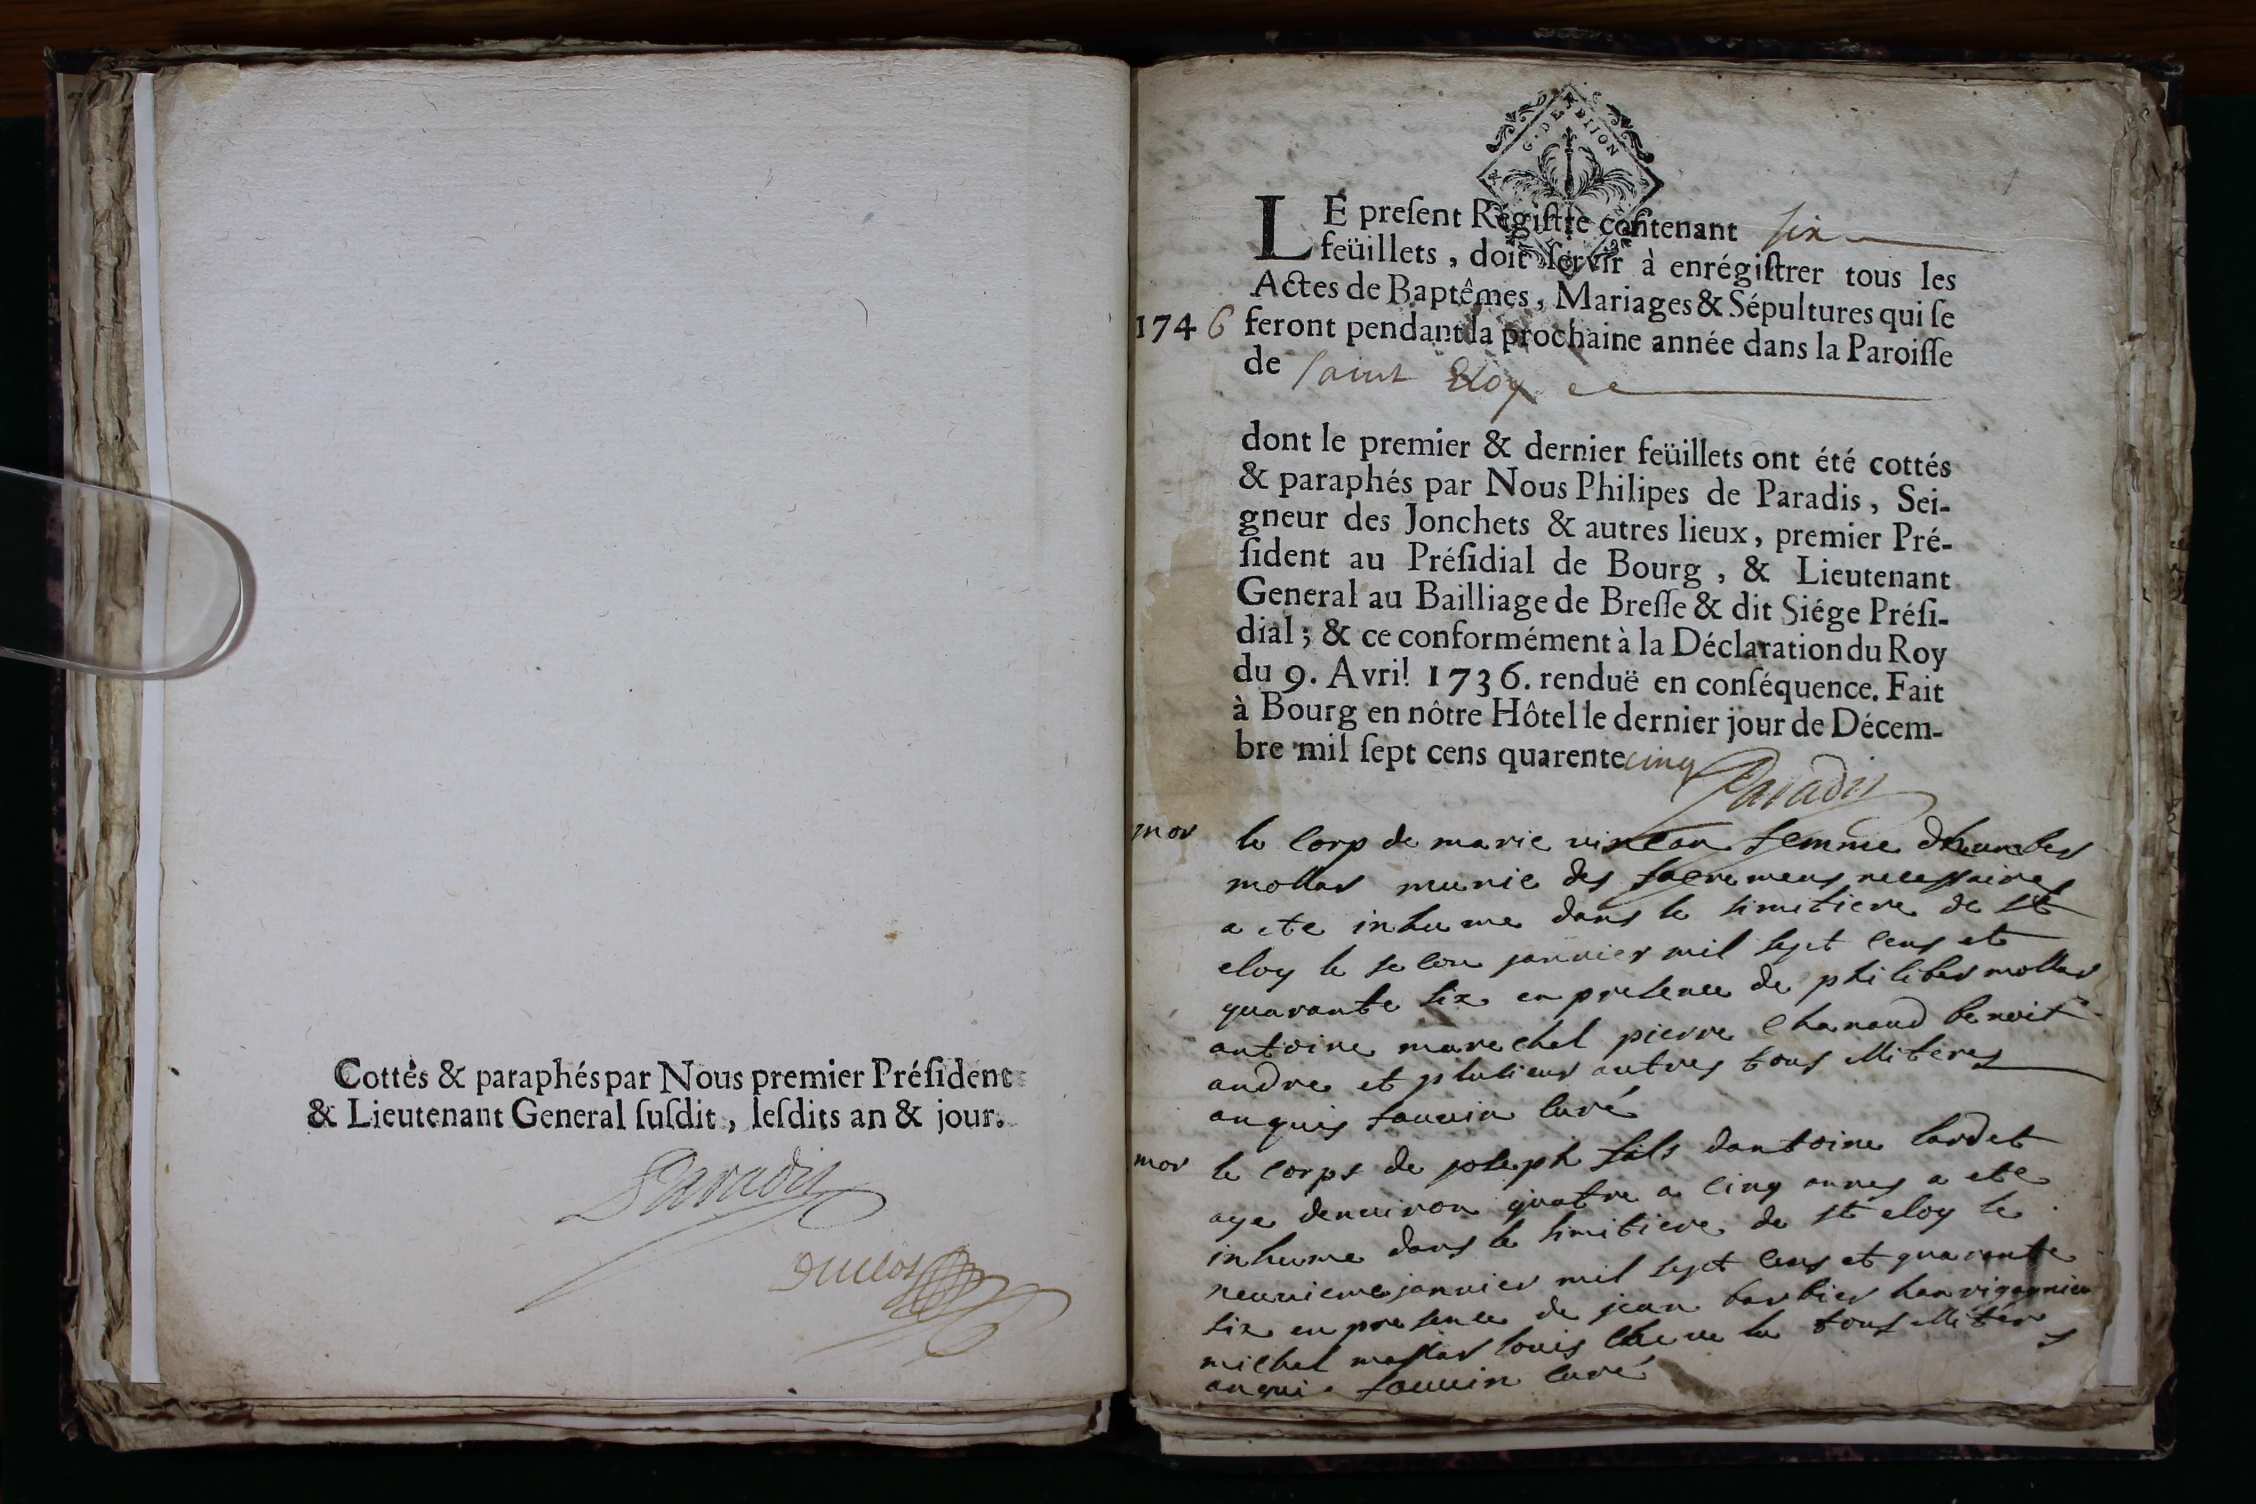 Cottés & paraphés par Nous premier Préſident
& Lieutenant General ſuſdit, leſdits an & jour.
Paradis
Duclos
G. DE DIJON
LE preſent Régiſtre contenant six
feüillets, doit ſervir à enrégiſtrer tous les
Actes de Baptêmes, Mariages & Sépultures qui ſe
1746 feront pendant la prochaine année dans la Paroiſſe
de saint Eloy
dont le premier & dernier feüillets ont été cottés
& paraphés par Nous Philipes de Paradis, Sei-
gneur des Jonchets & autres lieux, premier Pré-
ſident au Préſidial de Bourg, & Lieutenant
General au Bailliage de Breſſe & dit Siége Préſi-
dial; & ce conformément à la Déclaration du Roy
du 9. Avril 1736. renduë en conſéquence. Fait
à Bourg en nôtre Hôtel le dernier jour de Décem-
bre mil ſept cens quarente cinq
Paradis
mor le corp de marie femme
mollar munie des sacremens necessaires
a ete inhume dans le simetiere de st
eloy le secon janvier mil sept cens et
quarante six en presence de philiber mollar
antoine marechal pierre chanaud benoit
andre et plusieurs autres tous illiteres
anquis fauvin curé
mor le corps de joseph fils dantoine lardet
age denviron quatre a cinq annes a ete
inhume dans le simitiere de st eloy le
neuvieme janvier mil sept cens et quarante
six en presence de jean barbier
michel mollar louis tous illiteres
anqui fauvin curé